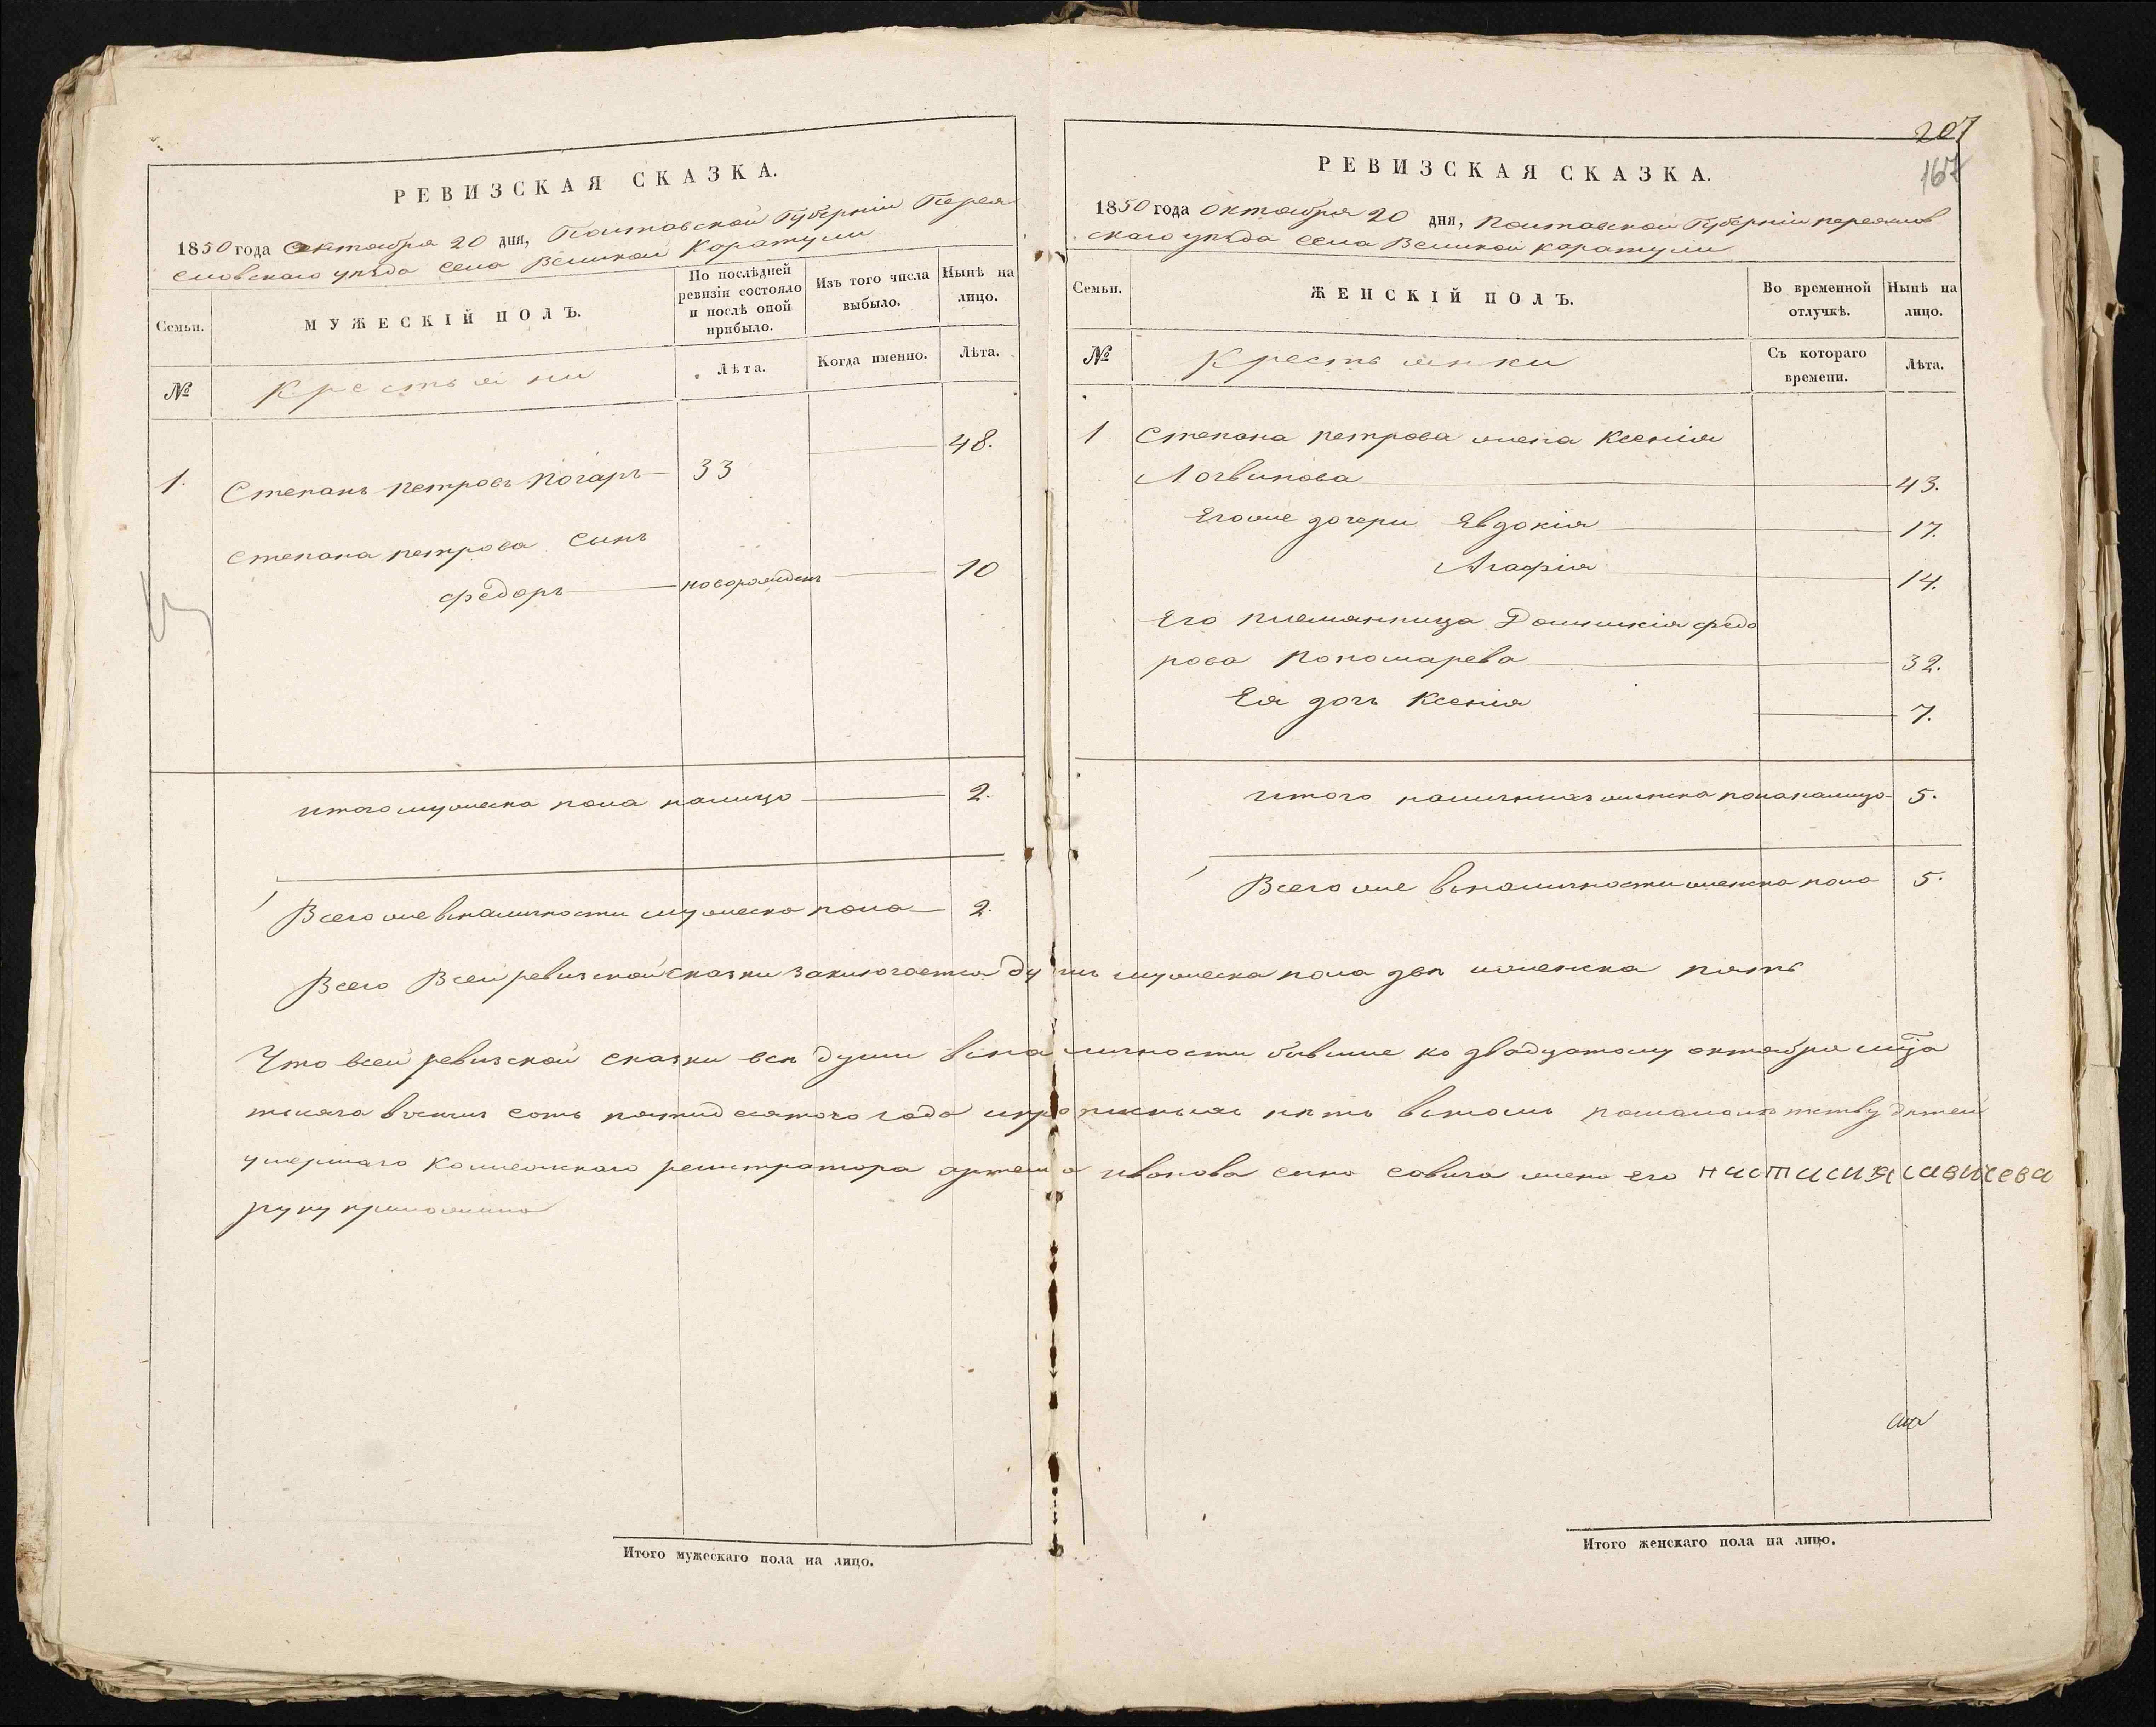 РЕВИЗСКАЯ СКАЗКА.
1850 года октября 20 дня, Полтавской Губерніи Перея
словскаго уѣзда села Великой Каратули
Семьи.
МУЖЕСКІЙ ПОЛЪ.
По послѣдней ревизіи состояло и послѣ оной прибыло.
Изъ того числа выбыло.
Нынѣ на лицо.
№
Крестьяни
Лѣта.
Когда именно.
Лѣта.
1. Степанъ петровъ погаръ 33 48.
Степана петрова Синъ
федоръ новорожденъ 10
итого мужеска пола налицо 2.
Всего же вналичности мужеска пола 2.
207
167
РЕВИЗСКАЯ СКАЗКА.
1850 года октября 20 дня, Полтавской Губерніи переяслов
скаго уѣзда села Великой каратули
Семьи.
ЖЕНСКІЙ ПОЛЪ.
Во временной отлучкѣ.
Нынѣ на лицо.
№
Крестьянки
Съ котораго времени.
Лѣта.
1 Степана петрова жена Ксенія
Логвинова 43.
Егоже дочери Явдокія 17.
Агафія 14.
Его племянница Домникія федо
рова Пономарева 32.
Ея дочь Ксенія 7.
итого наличныхъ женска пола налицо 5.
Всего же вналичности женска пола 5.
Всего Всей ревизской сказки заключается душъ мужеска пола двѣ иженска пять
Что всей ревизской сказки всѣ души вналичности бывшие ко двадцатому октября мца
тысяча восимъ сотъ пятидесятого года ипрописныхъ нѣтъ втомъ помалолѣтству дѣтей
умершаго Колежскаго регистратора артема иванова сина савича жена его настасия савичева
руку приложила
Итого мужескаго пола на лицо.
Итого женскаго пола на лицо.